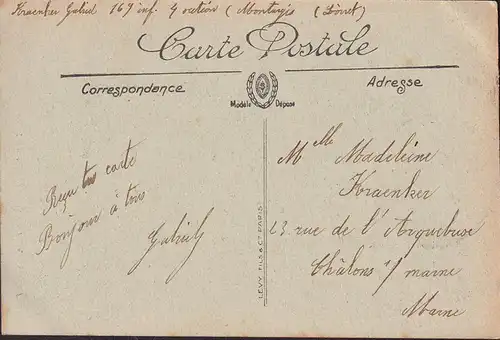 Kraenker Gabriel 169 inf. 4 section (Montargis (Loiret)
Carte Postale
Correspondance
Adresse
Modèle Déposé
Reçu tes carte
Bonjour à tous
Gabriel
LEVY FILS & Cie PARIS
Mlle Madeleine
Kraenker
23 rue de l'Arquebuse
Châlons s/ marne
Marne